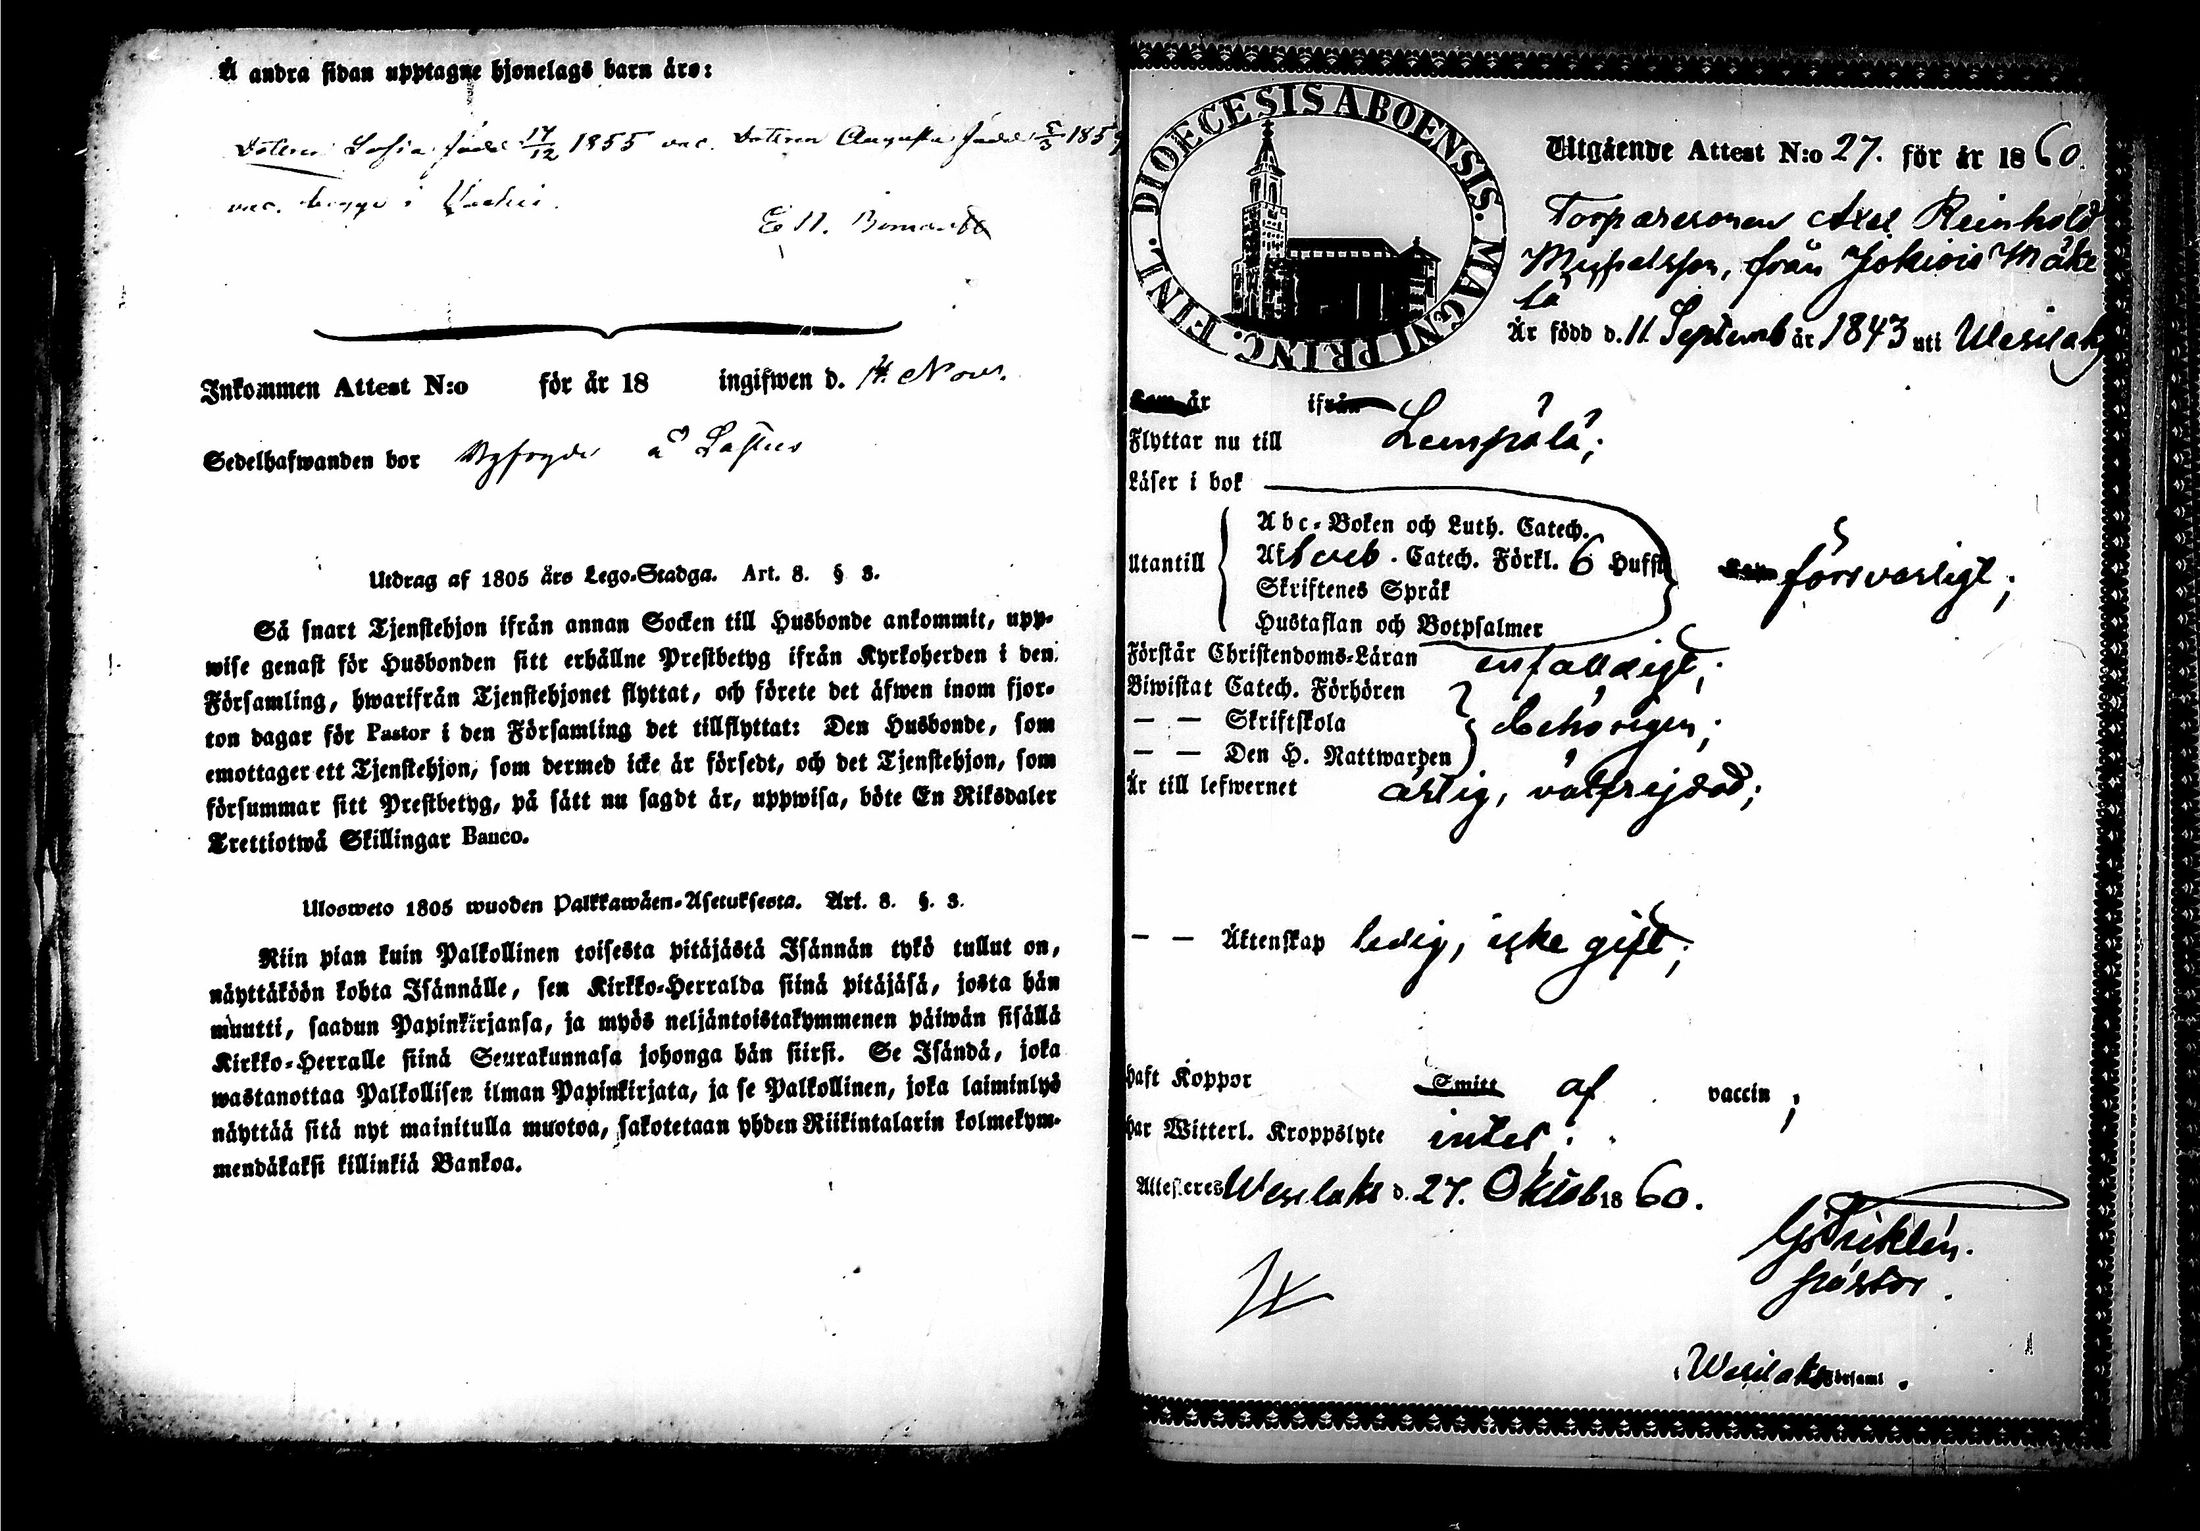 Å andra sidan upptagne hjonelags barn äro:
Dotren Sofia född 17/12 1855 vac. Dotren Augusta född 5/3 185
vac. begge i
E N.
Inkommen Attest N:o för år 18 ingifwen d. 14. Novr.
Sedelhafwanden bor å
Utdrag af 1805 års Lego-Stadga. Art. 8. § 3.
Så snart Tjenstehjon ifrån annan Socken till Husbonde ankommit, upp-
wise genast för Husbonden sitt erhållne Prestbetyg ifrån Kyrkoherden i den
Församling, hwarifrån Tjenstehjonet flyttat, och förete det äfwen inom fjor-
ton dagar för Pastor i den Församling det tillflyttat: Den Husbonde, som
emottager ett Tjenstehjon, som dermed icke är försedt, och det Tjenstehjon, som
försummar sitt Prestbetyg, på sätt nu sagdt är, uppwisa, böte En Riksdaler
Trettiotwå Skillingar Banco.
Ulosweto 1805 wuoden Palkkawäen-Asetuksesta. Art. 8. §. 3.
Niin pian kuin Palkollinen toisesta pitäjästä Isännän tykö tullut on,
näyttäköön kohta Isännälle, sen Kirkko-Herralda siinä pitäjäsä, josta hän
muutti, saadun Papinkirjansa, ja myös neljäntoistakymmenen päiwän sisällä
Kirkko-Herralle siinä Seurakunnasa johonga hän siirsi. Se Isändä, joka
wastanottaa Palkollisen ilman Papinkirjata, ja se Palkollinen, joka laiminlyö
näyttää sitä nyt mainitulla muotoa, sakotetaan yhden Riikintalarin kolmekym-
mendäkaksi killinkiä Bankoa.
DIOECESIS ABOENSIS. MAGNI PRINC. FINL.
Utgående Attest N:o 27. för år 1860.
Torparesonen Axel Reinhold
från Jokiois Mäke
lä
Är född d. 11 Septemb år 1843 uti Wesilaks
Kom år ifrån
Flyttar nu till Lempälä;
Läser i bok
Utantill
Abc-Boken och Luth. Catech.
Catech. Förkl. 6 Hufst
Skriftenes Språk
Hustaflan och Botpsalmer
försvarligt;
Förstår Christendoms-Läran enfaldigt;
Biwistat Catech. Förhören
— — Skriftskola behörigen;
— — Den H. Nattwarden
Är till lefwernet ärlig, välfrejdad;
— — Äktenskap ledig, icke gift;
Haft Koppor Smitt af vaccin;
Har Witterl. Kroppslyte intet.
Attesteres Wesilaks d. 27. Oktob 1860.
pastor.
Wesilaks